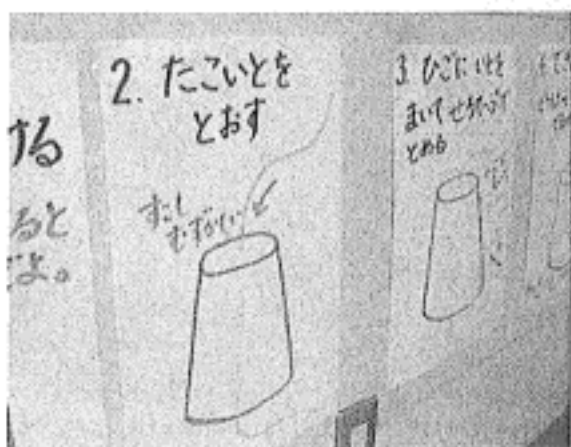 ける
ると
だよ。
2. たこいとを
とおす
すこし
むずかしい
3. ひごにいとを
まいてせろてープで
とめる